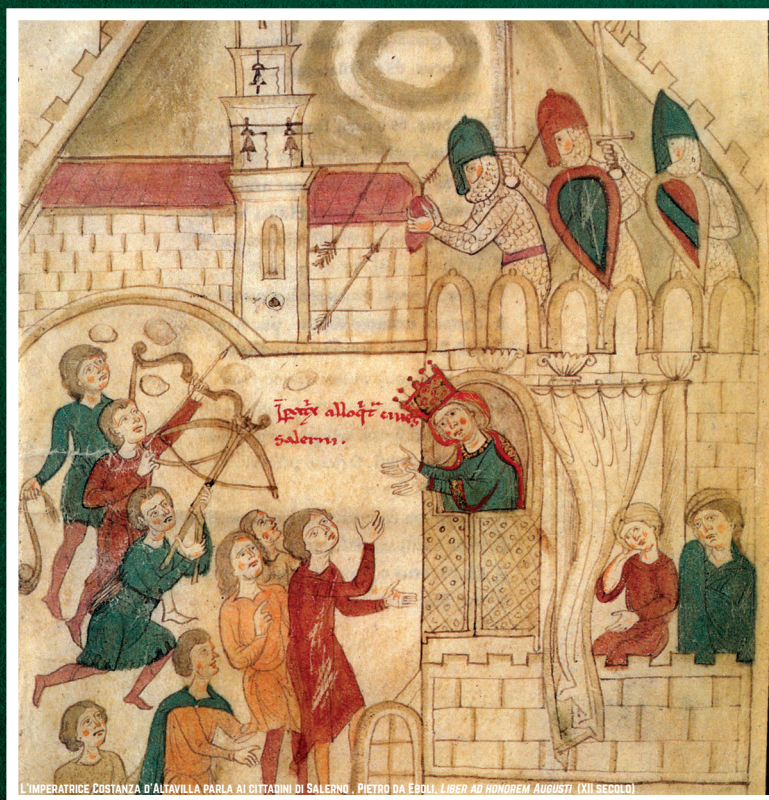 I̅pat͛x alloq̅t͛ cives
salerni.
L'imperatrice Costanza d'Altavilla parla ai cittadini di Salerno , Pietro da Eboli, Liber ad honorem Augusti (XII secolo)